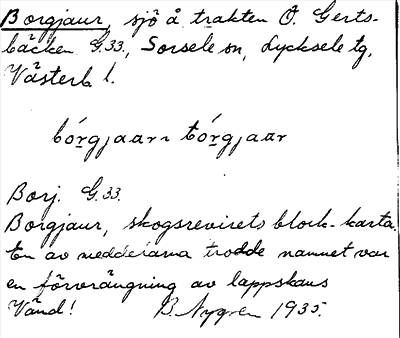 Borgjaur, sjö å trakten Ö. Gerts-
bäcken G.33., Sorsele sn, Lycksele tg,
Västerb. l.
bórgjaar ~ tórgjaar
Borj. G.33.
Borgjaur, skogsrevirets block-karta.
En av meddelarna trodde namnet var
en förvrängning av lappskans
Vänd! B. Nygren 1935.